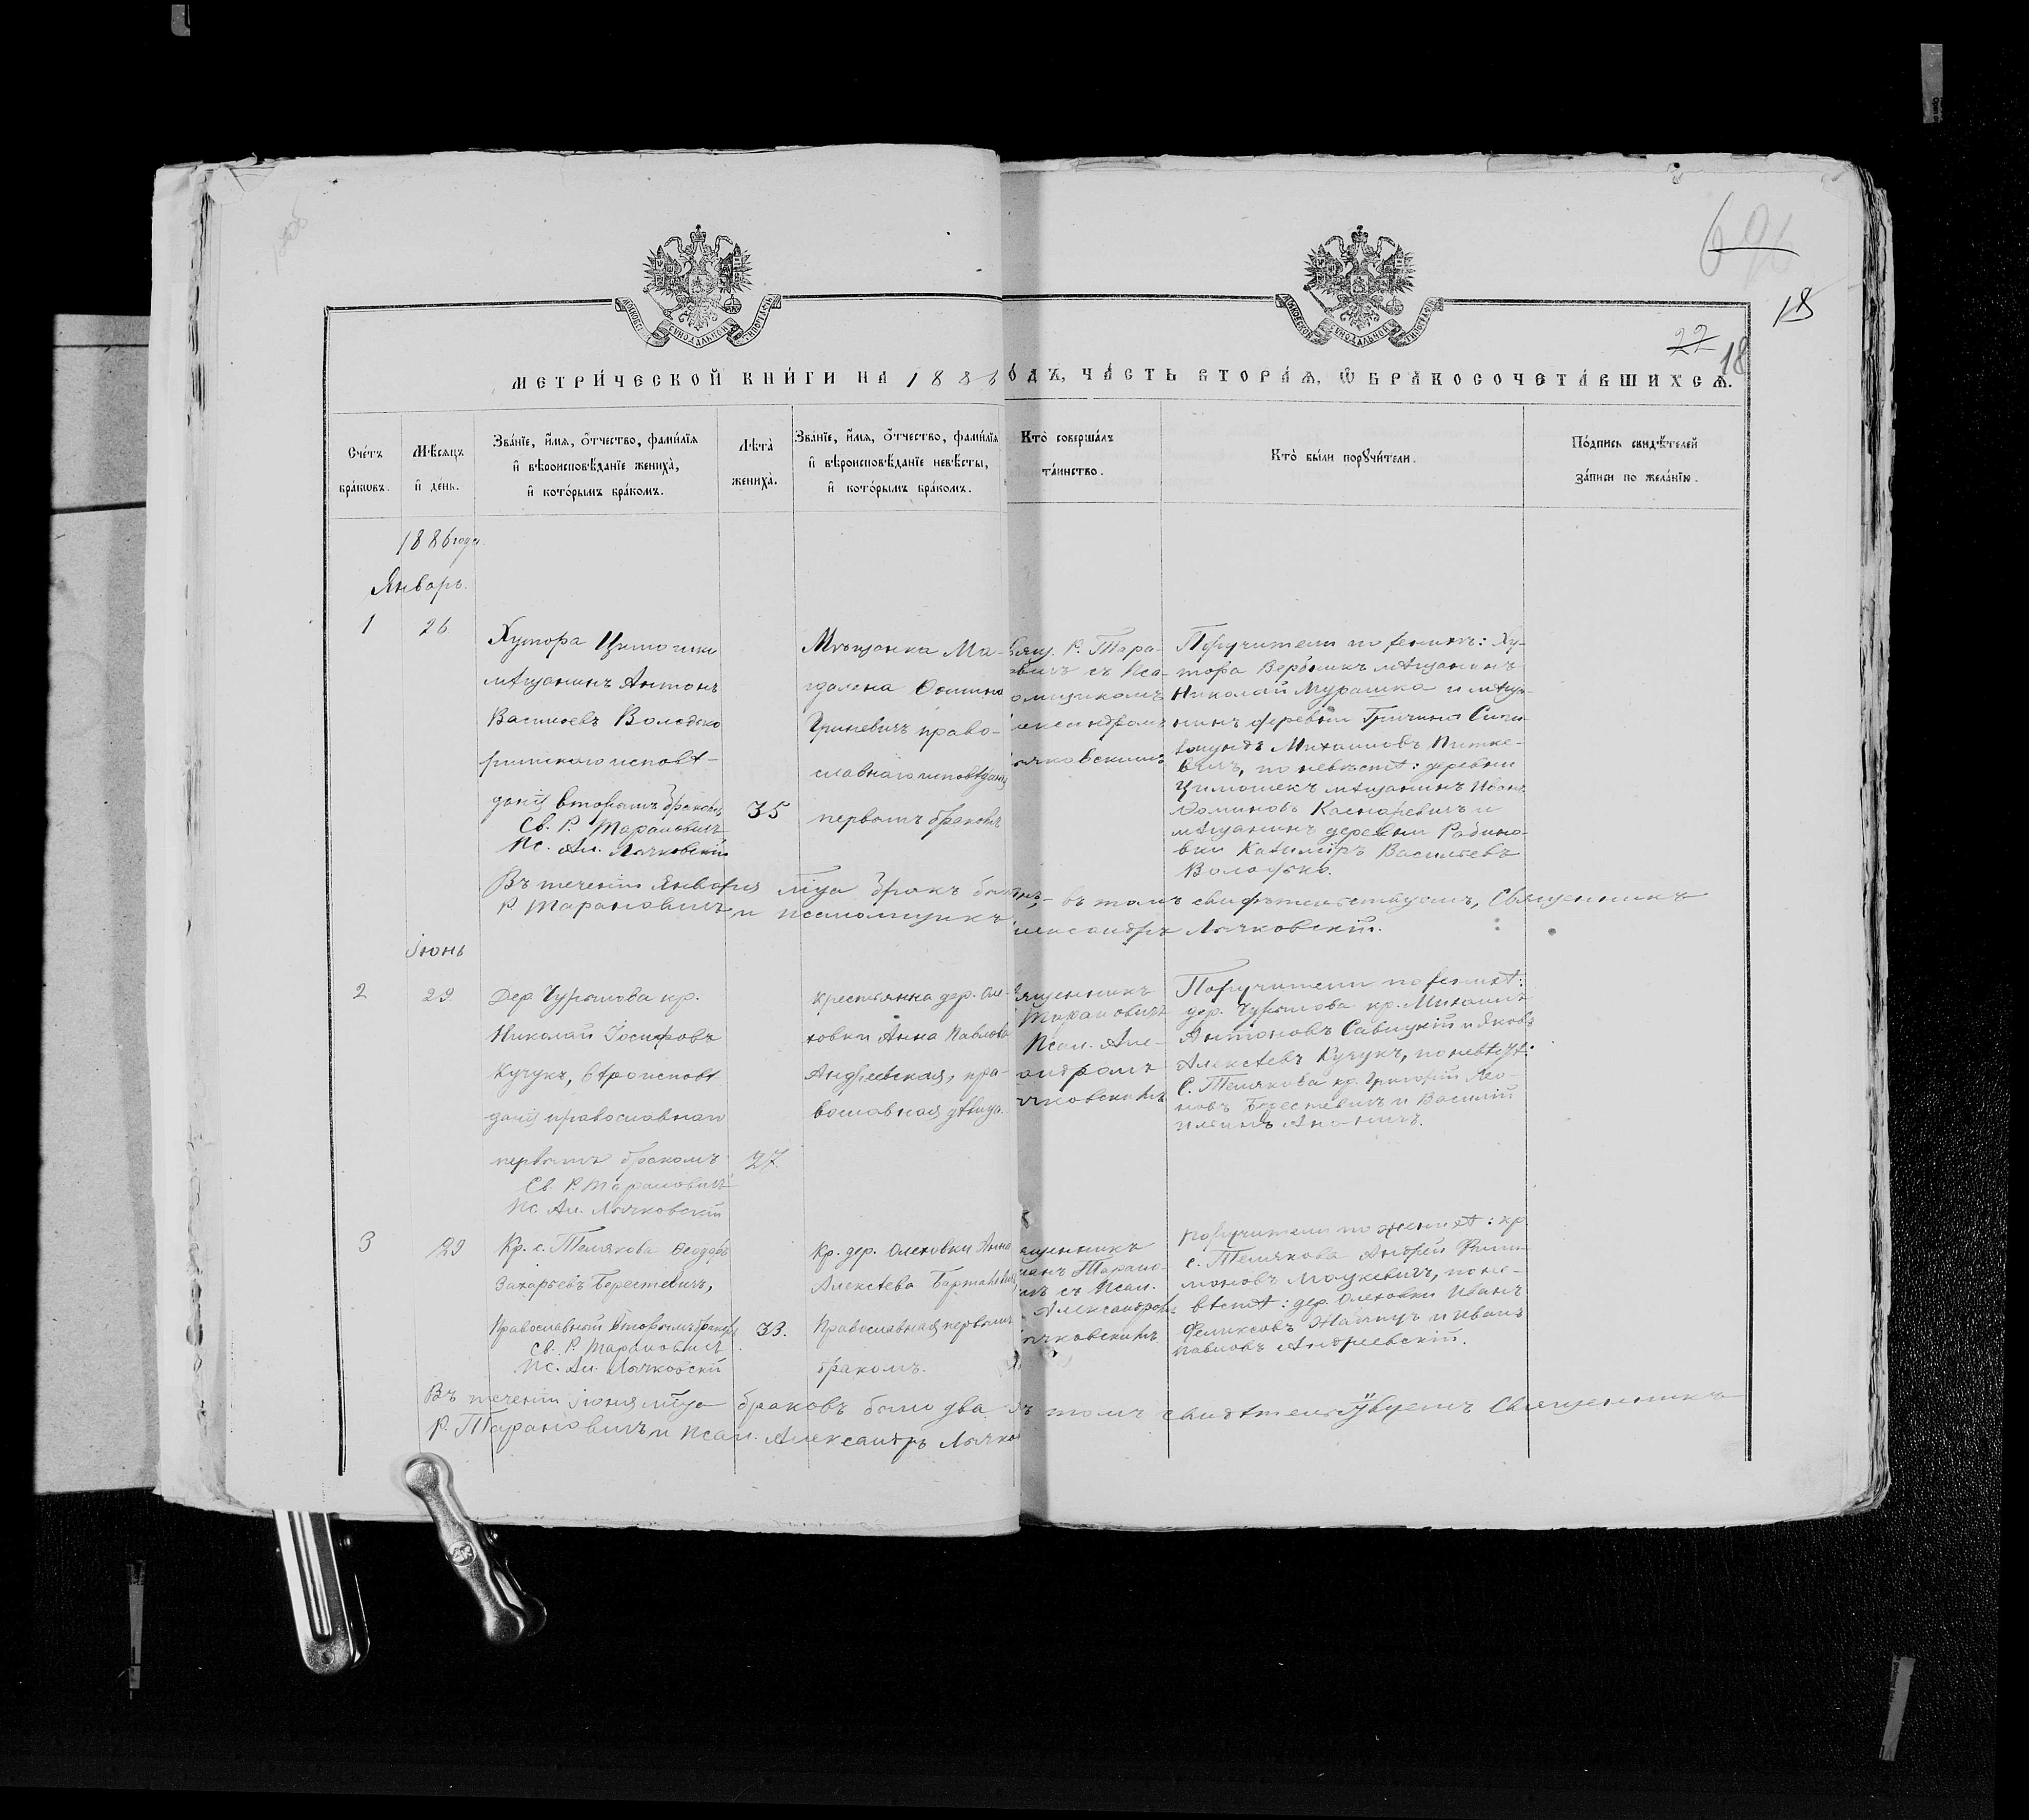 692
18
22
18
МЕТРИ́ЧЕСКОЙ КНИ́ГИ НА 1886 ОДЪ, ЧА́СТЬ ВТОРА́Ѧ, Ѿ БРАКОСОЧЕТА́ВШИХСѦ.
Сче́тъ бра́кωвъ.
Мѣ́сяцъ и҆ де́нь.
Зва́нїе, и҆́мѧ, ѻ҆́тчество, фамилїѧ и҆ вѣроисповѣ́данїе жениха̀, и҆ кото́рымъ бра́комъ.
Лѣта̀ жениха̀.
Зва́нїе, и҆́мѧ, ѻ҆́тчество, фамилїѧ и҆ вѣроисповѣ́данїе невѣ́сты, и҆ кото́рымъ бра́комъ.
Кто̀ соверша́лъ та́инство.
Кто̀ бы́ли порꙋчи́тели.
По́дпись свидѣ́телей за́писи по жела́нїю.
1886 года
Январь.
1
26
Хутора
мѣщанинъ Антонъ
Васильевъ Володько
римскаго исповѣ-
данія вторымъ бракомъ
Св. Р. Тарановичъ
Пс. Ал. Лычковскій
35
Мѣщанка Ма-
гдалена
Гриневичъ право-
славнаго исповѣданія
первымъ бракомъ
вящ. Р. Тара-
овичъ съ Пса-
омщикомъ
лександромъ
ычковскимъ
Поручители по женихѣ: Ху-
тора мѣщанинъ
Николай Мурашка и мѣща-
нинъ деревни Гричина Сиги-
змундъ Михаиловъ Питке-
вичъ, по невѣстѣ: деревни
Цимошекъ мѣщанинъ Иванъ
Доминовъ Каспаревичъ и
мѣщанинъ деревни Рабино-
вки Казиміръ Васильевъ
Володько.
Въ теченіи Января м̃ца бракъ былъ въ томъ свидѣтельствуемъ, Священникъ
Р. Тарановичъ и псаломщикъ лександръ Лычковскій.
Іюнь
2
29
Дер. Чурилова кр.
Николай Іосифовъ
Кучукъ, вѣроисповѣ-
данія православнаго
первымъ бракомъ
Св. Р. Тарановичъ
Пс. Ал. Лычковскій
27.
крестьянка дер. Оле-
ховки Анна Павлова
Андреевская, пра-
вославная дѣвица.
ященникъ
Тарановичъ
Псал. Але-
андромъ
ычковскимъ
Поручители по женихѣ:
дер. Чурилова кр. Михаилъ
Антоновъ Савицкій и Яковъ
Алексѣевъ Кучукъ, по невѣстѣ:
с. Телякова кр. Григорій Лео-
новъ Берестевичъ и Василій
Ильинъ
3
29
Кр. с. Телякова Ѳеодоръ
Захарьевъ Берестевичъ,
Православный вторымъ бракомъ
Св. Р. Тарановичъ
Пс. Ал. Лычковскій
33.
Кр. дер. Олеховки Анна
Алексѣева
Православная первымъ
бракомъ.
ященникъ
манъ Тарано-
чъ съ Псал.
Александромъ
ычковскимъ
Поручители по женихѣ: кр.
с. Телякова Андрей Фили-
моновъ Мацкевичъ, по не-
вѣстѣ: дер. Олеховки Иванъ
Феликсовъ и Иванъ
Павловъ Андреевскій.
Въ теченіи іюня м̃ца браковъ было два въ томъ свидѣтельствуемъ Священникъ
Р. Тарановичъ и Псал. Александръ Лычко